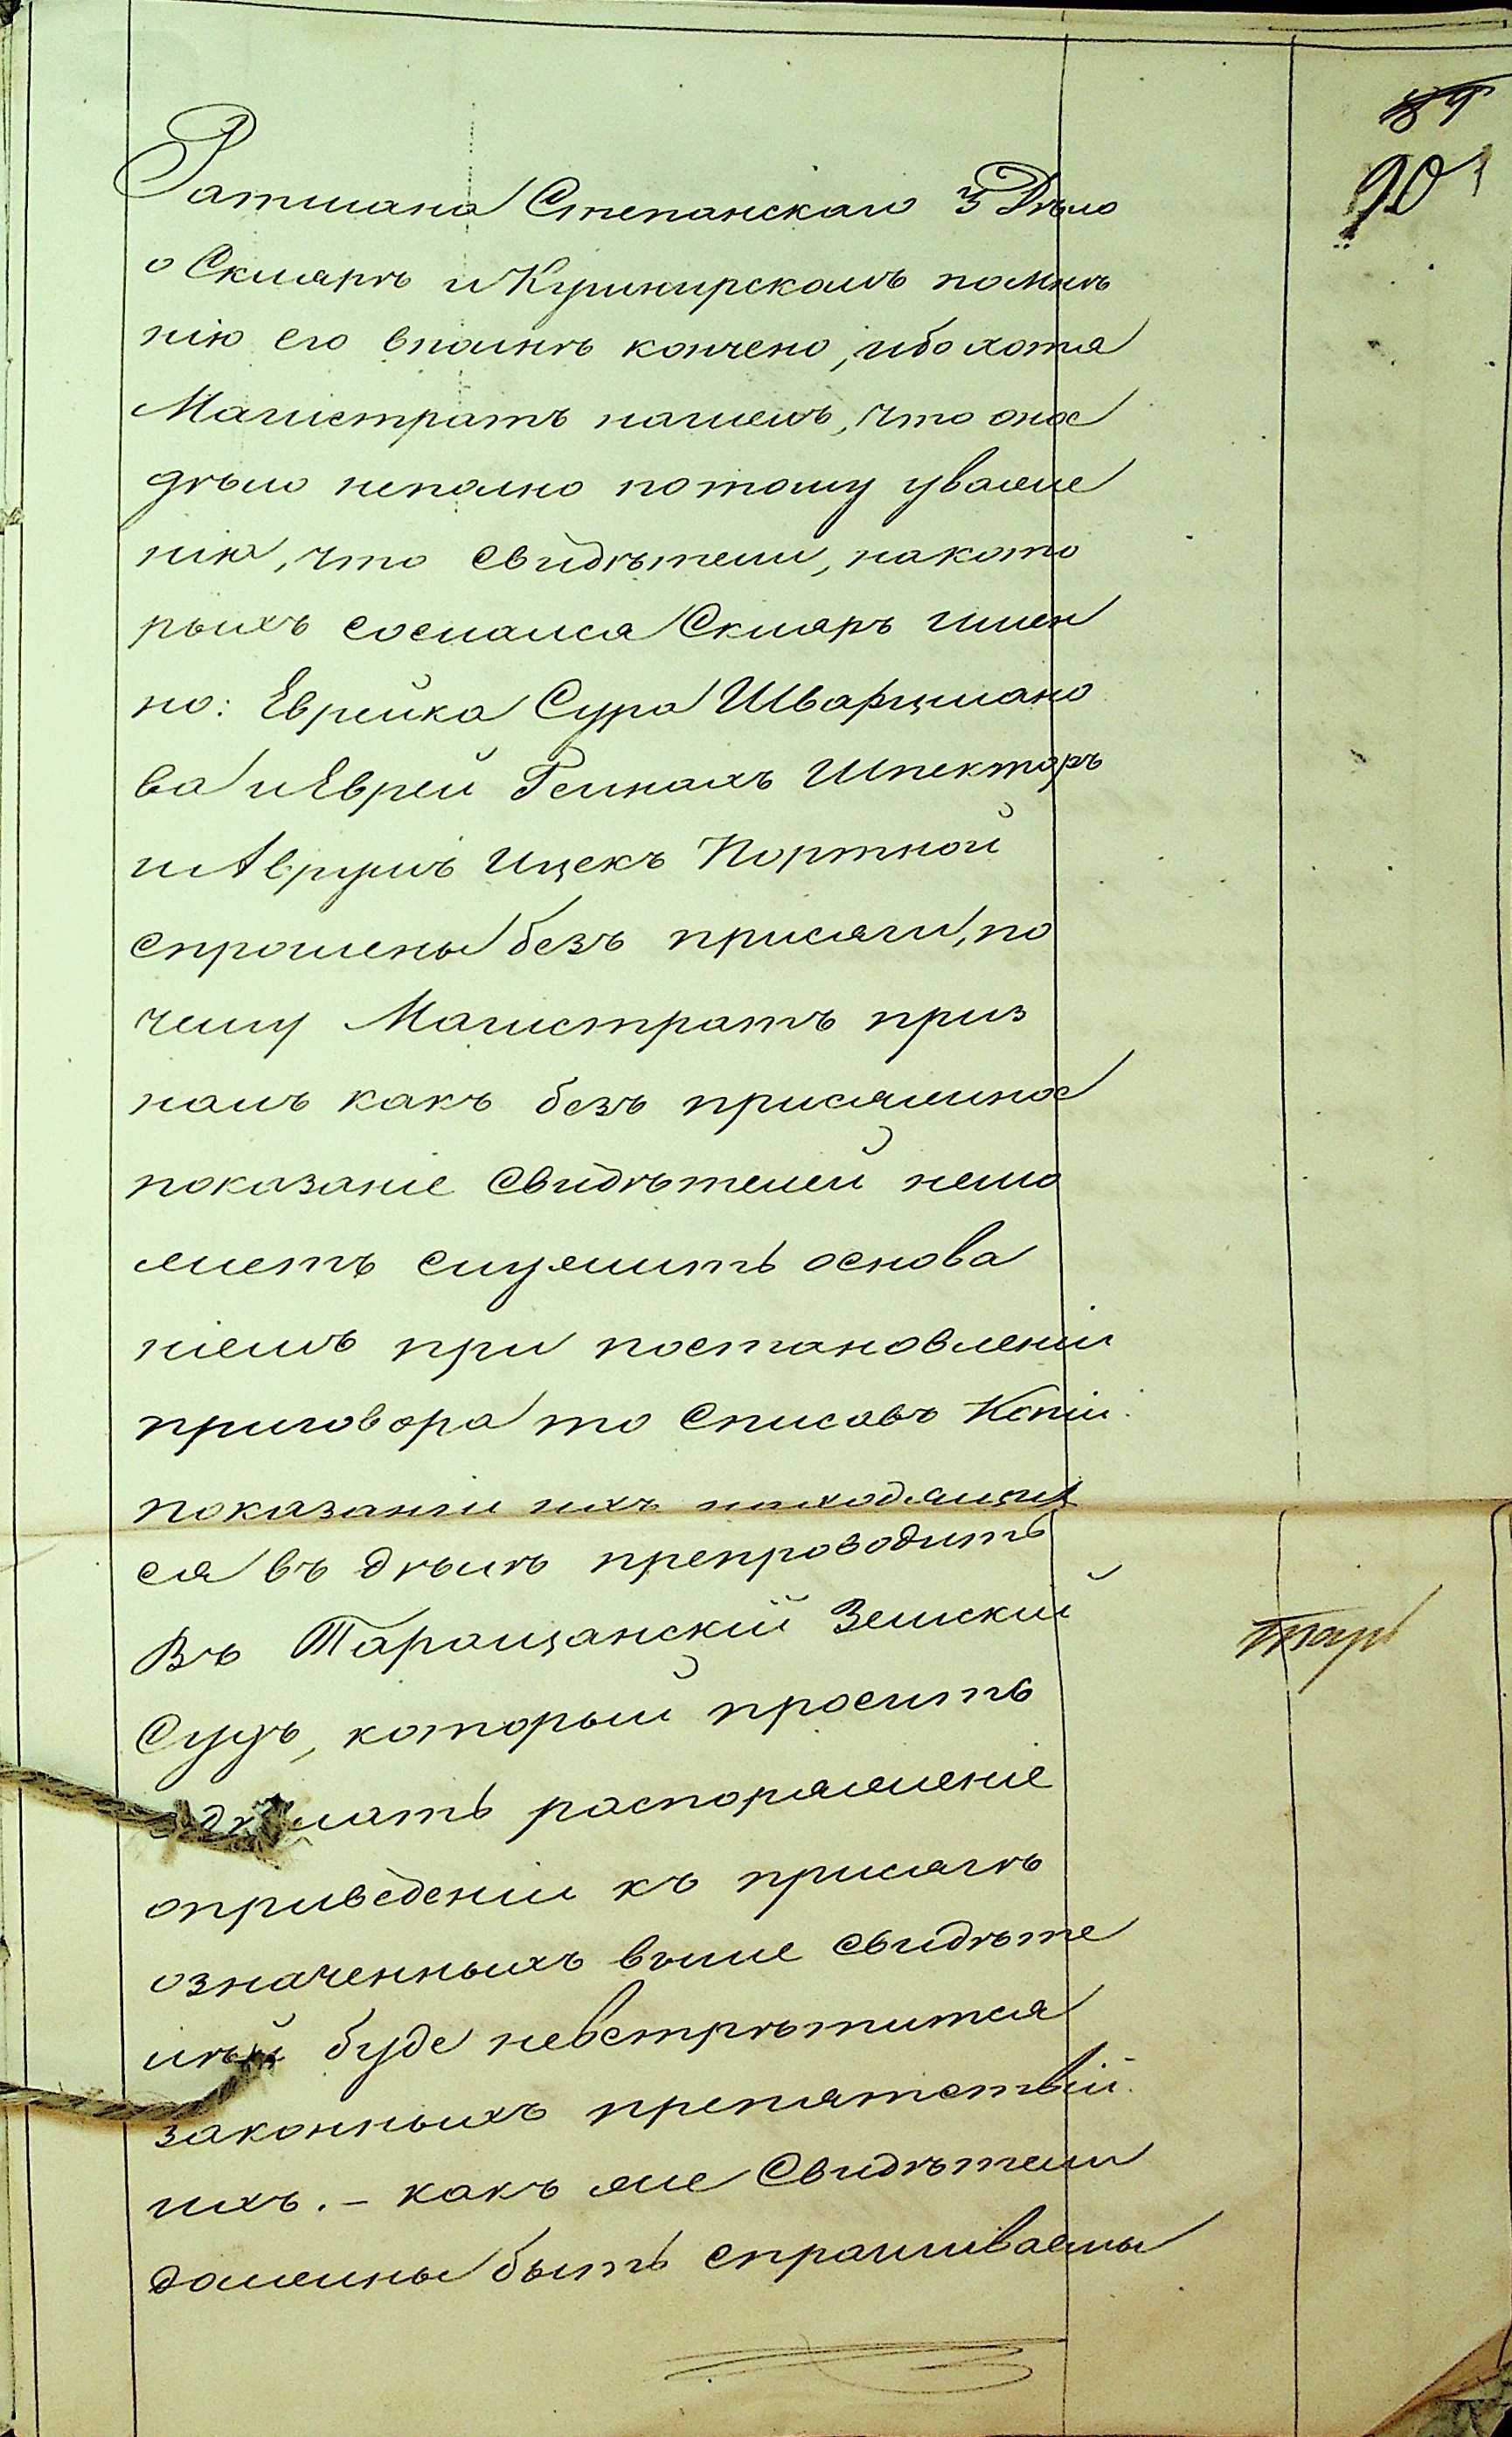 90
Ратмана Степанскаго 3 Дѣло
о Скляргѣ и Кушнирскомъ помнѣ
нію его вполнѣ кончено, ибо хотя
Магистратъ нашелъ, что оное
дѣло неполно потому уваже
нію, что свидѣтели, накото
рыхъ сослался Скляръ имен
но: Еврейка Сура Шварцмано
ва и Еврей Геинахъ Шпекторъ
и Аврумъ Ицекъ Портной
спрошены безъ присяги, по
чему Магистратъ приз
налъ какъ безъ присяжное
показаніе свидѣтелей немо
жетъ служить основа
ніемъ при постановленіи
приговора то списавъ Копіи
показаніи ихъ находящих
ся въ дѣлѣ препроводить
Въ Таращанскій Земскій
Судъ, который просить
сдѣлать распоряженіе
оприведеніи къ присягѣ
означенныхъ выше свидѣте
лѣй буде невстрѣтится
законныхъ препятствій
ихъ. – какъ же Свидѣтели
должны быть спрашиваемы